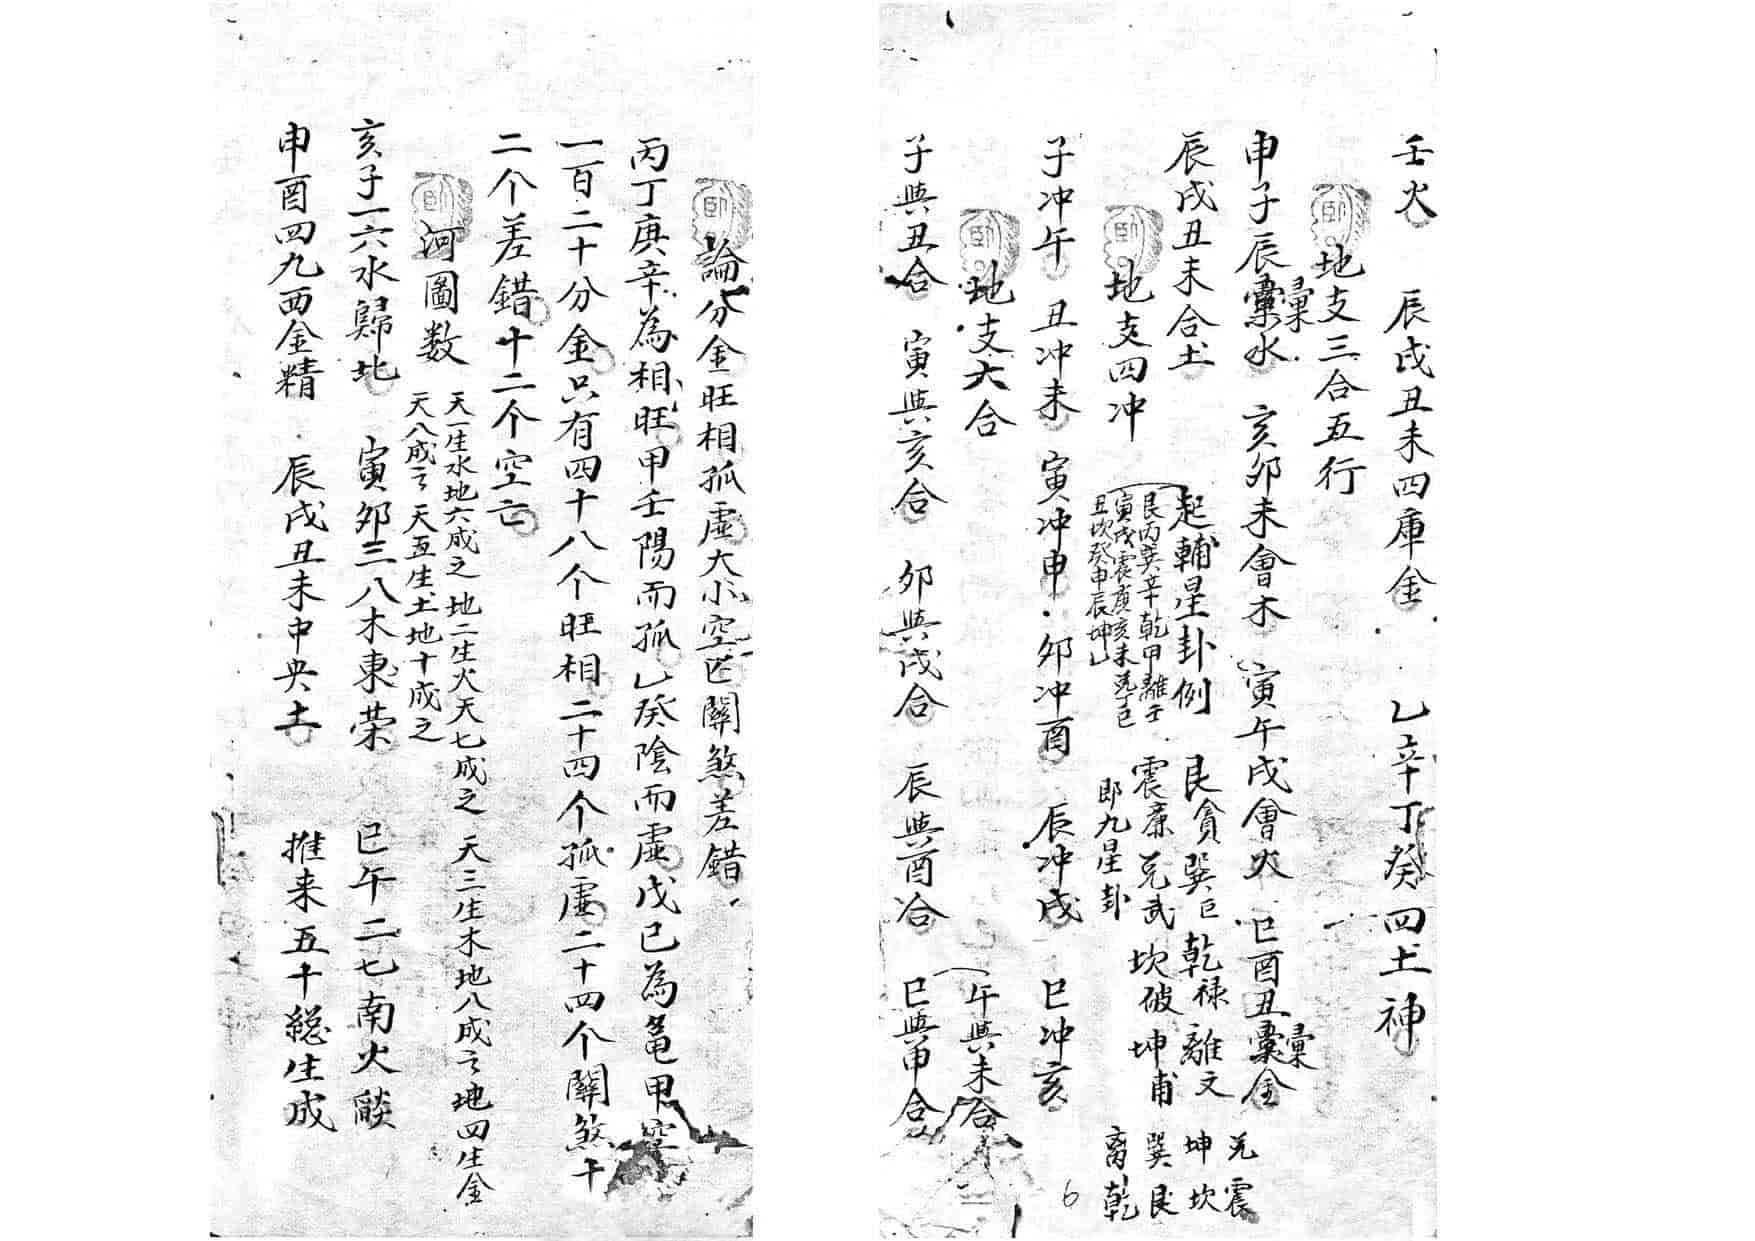 壬火　辰戌丑未四庫金　乙辛丁癸四土神
地支三合五行
申子辰彙水　亥卯未會木　寅午戌會火　巳酉丑彙金
彙
彙
辰戌丑未合土
起輔星卦例
艮丙巽辛乾甲離壬
寅戌震庚亥未兑丁巳
丑坎癸申辰坤乙
艮貪巽巨乾禄離文
震廉兑武坎破坤甫
即九星卦
兑震
坤坎
巽艮
离乾
地支四冲
子冲午　丑冲未　寅冲申　卯冲酉　辰冲戌　巳冲亥
地支六合
午與未合
子與丑合　寅與亥合　卯與戌合　辰與酉合　巳與申合
6
論分金旺相孤虚大小空亡關煞差錯
丙丁庚辛為相旺甲壬陽而孤乙癸陰而虚戊己為龜甲空
一百二十分金只有四十八个旺相二十四个孤虚二十四个關煞十
二个差錯十二个空亡
河圖数
天一生水地六成之　地二生火天七成之　天三生木地八成之地四生金
天八成之　天五生土地十成之
亥子一六水歸北　寅卯三八木東荣　巳午二七南火燄
申酉四九西金精　辰戌丑未中央土　推来五十総生成